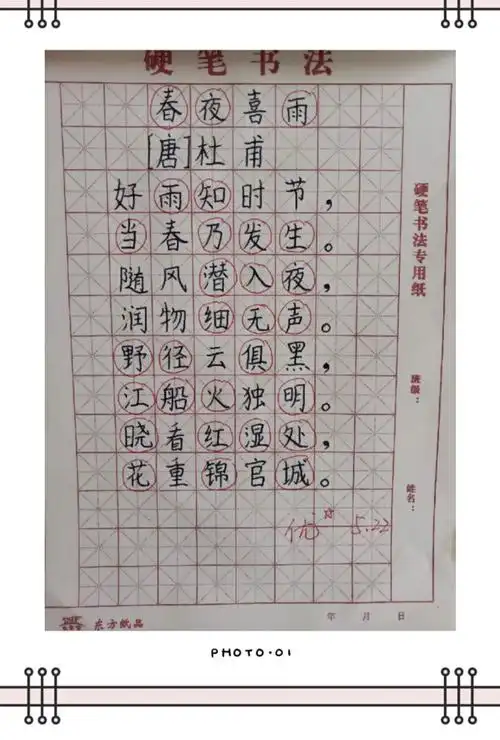 硬笔书法
春夜喜雨
[唐]杜甫
好雨知时节，
当春乃发生。
随风潜入夜，
润物细无声。
野径云俱黑，
江船火独明。
晓看红湿处，
花重锦官城。
优 5.22
硬笔书法专用纸
班级：
姓名：
东方纸品
年 月 日
PHOTO·01